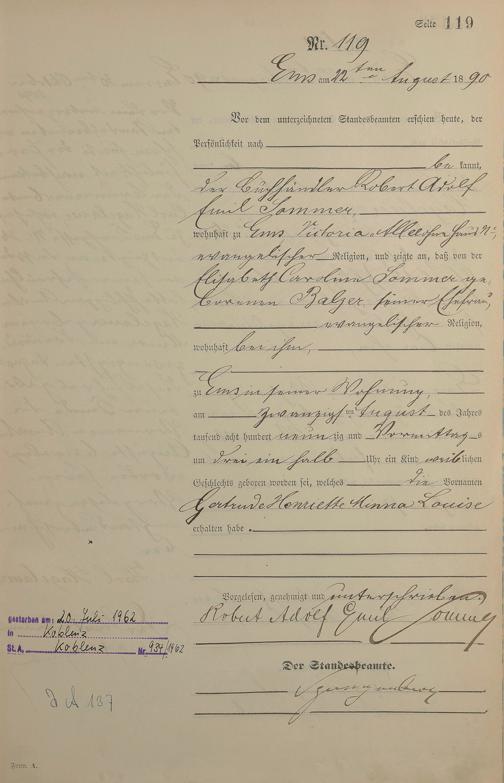 Seite 119
Nr. 119
Ems am 22ten August 1890
Vor dem unterzeichneten Standesbeamten erschien heute, der
Persönlichkeit nach
be kannt,
der Buchhändler Robert Adolf
Emil Sommer,
wohnhaft zu Ems Victoria-Allee ohne Haus N:,
evangelischer Religion, und zeigte an, daß von der
Elisabeth Caroline Sommer ge
borenen Balzer seiner Ehefrau,
evangelischer Religion,
wohnhaft bei ihm,
zu Ems in seiner Wohnung,
am zwanzigsten August des Jahres
tausend acht hundert neun zig und Vormittags
um drei ein halb Uhr ein Kind weiblichen
Geschlechts geboren worden sei, welches die Vornamen
Gertrude Henriette Minna Louise
erhalten habe.
Vorgelesen, genehmigt und unterschrieben
Robert Adolf Emil Sommer
Der Standesbeamte.
gestorben am: 20. Juli 1962
in Koblenz
St.A. Koblenz Nr. 934/1962
137
Form. A.